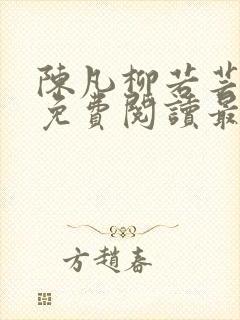 陳凡柳若芸
免費閱讀最
方趙春